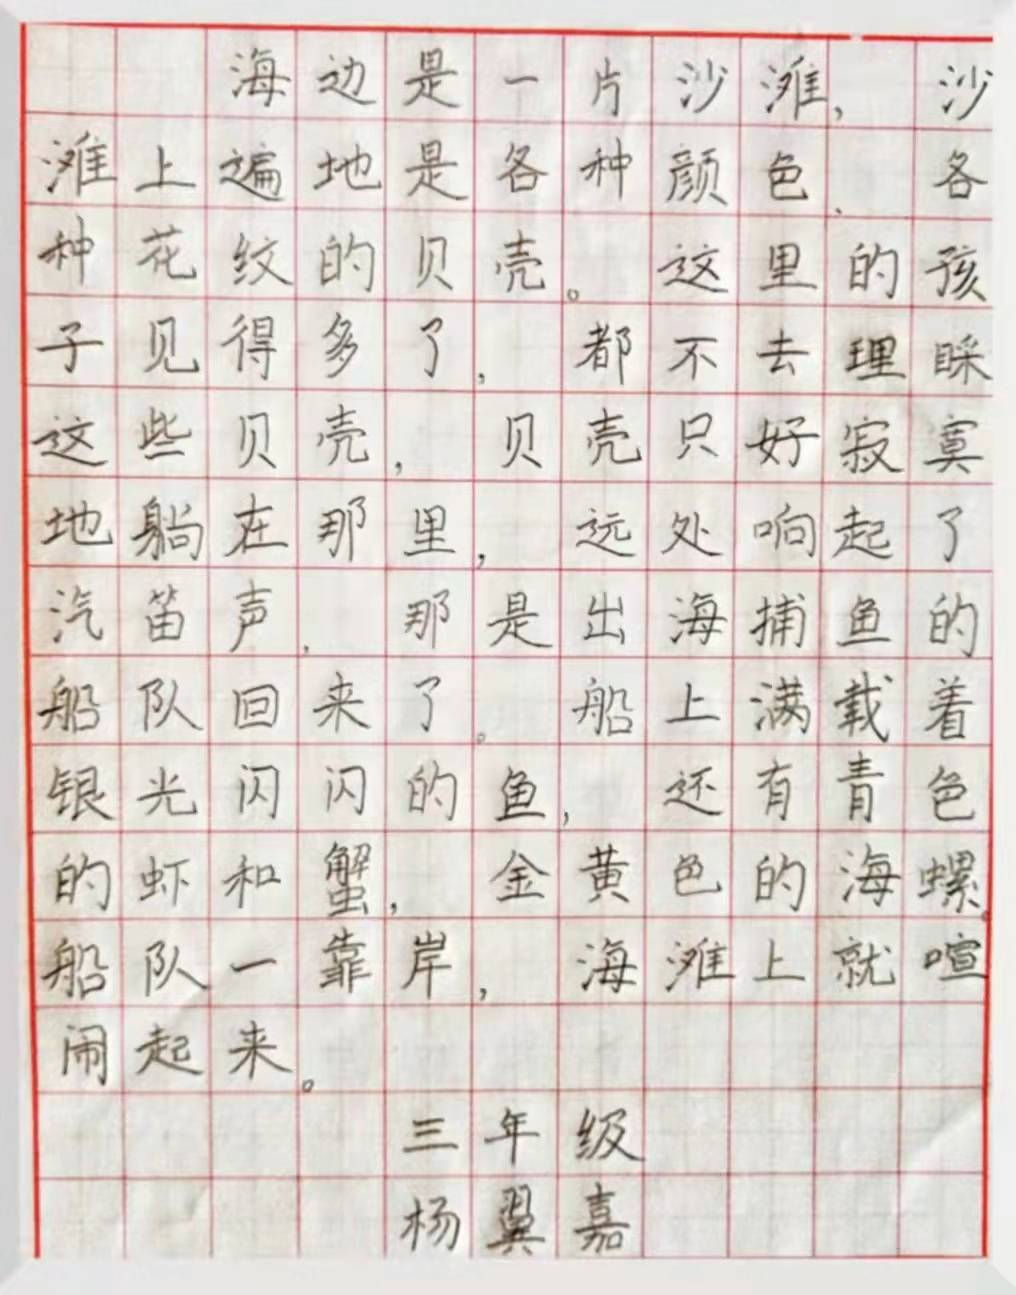 海边是一片沙滩，沙
滩上遍地是各种颜色、各
种花纹的贝壳。这里的孩
子见得多了，都不去理睬
这些贝壳，贝壳只好寂寞
地躺在那里，远处响起了
汽笛声，那是出海捕鱼的
船队回来了。船上满载着
银光闪闪的鱼，还有青色
的虾和蟹，金黄色的海螺。
船队一靠岸，海滩上就喧
闹起来。
三年级
杨翼嘉